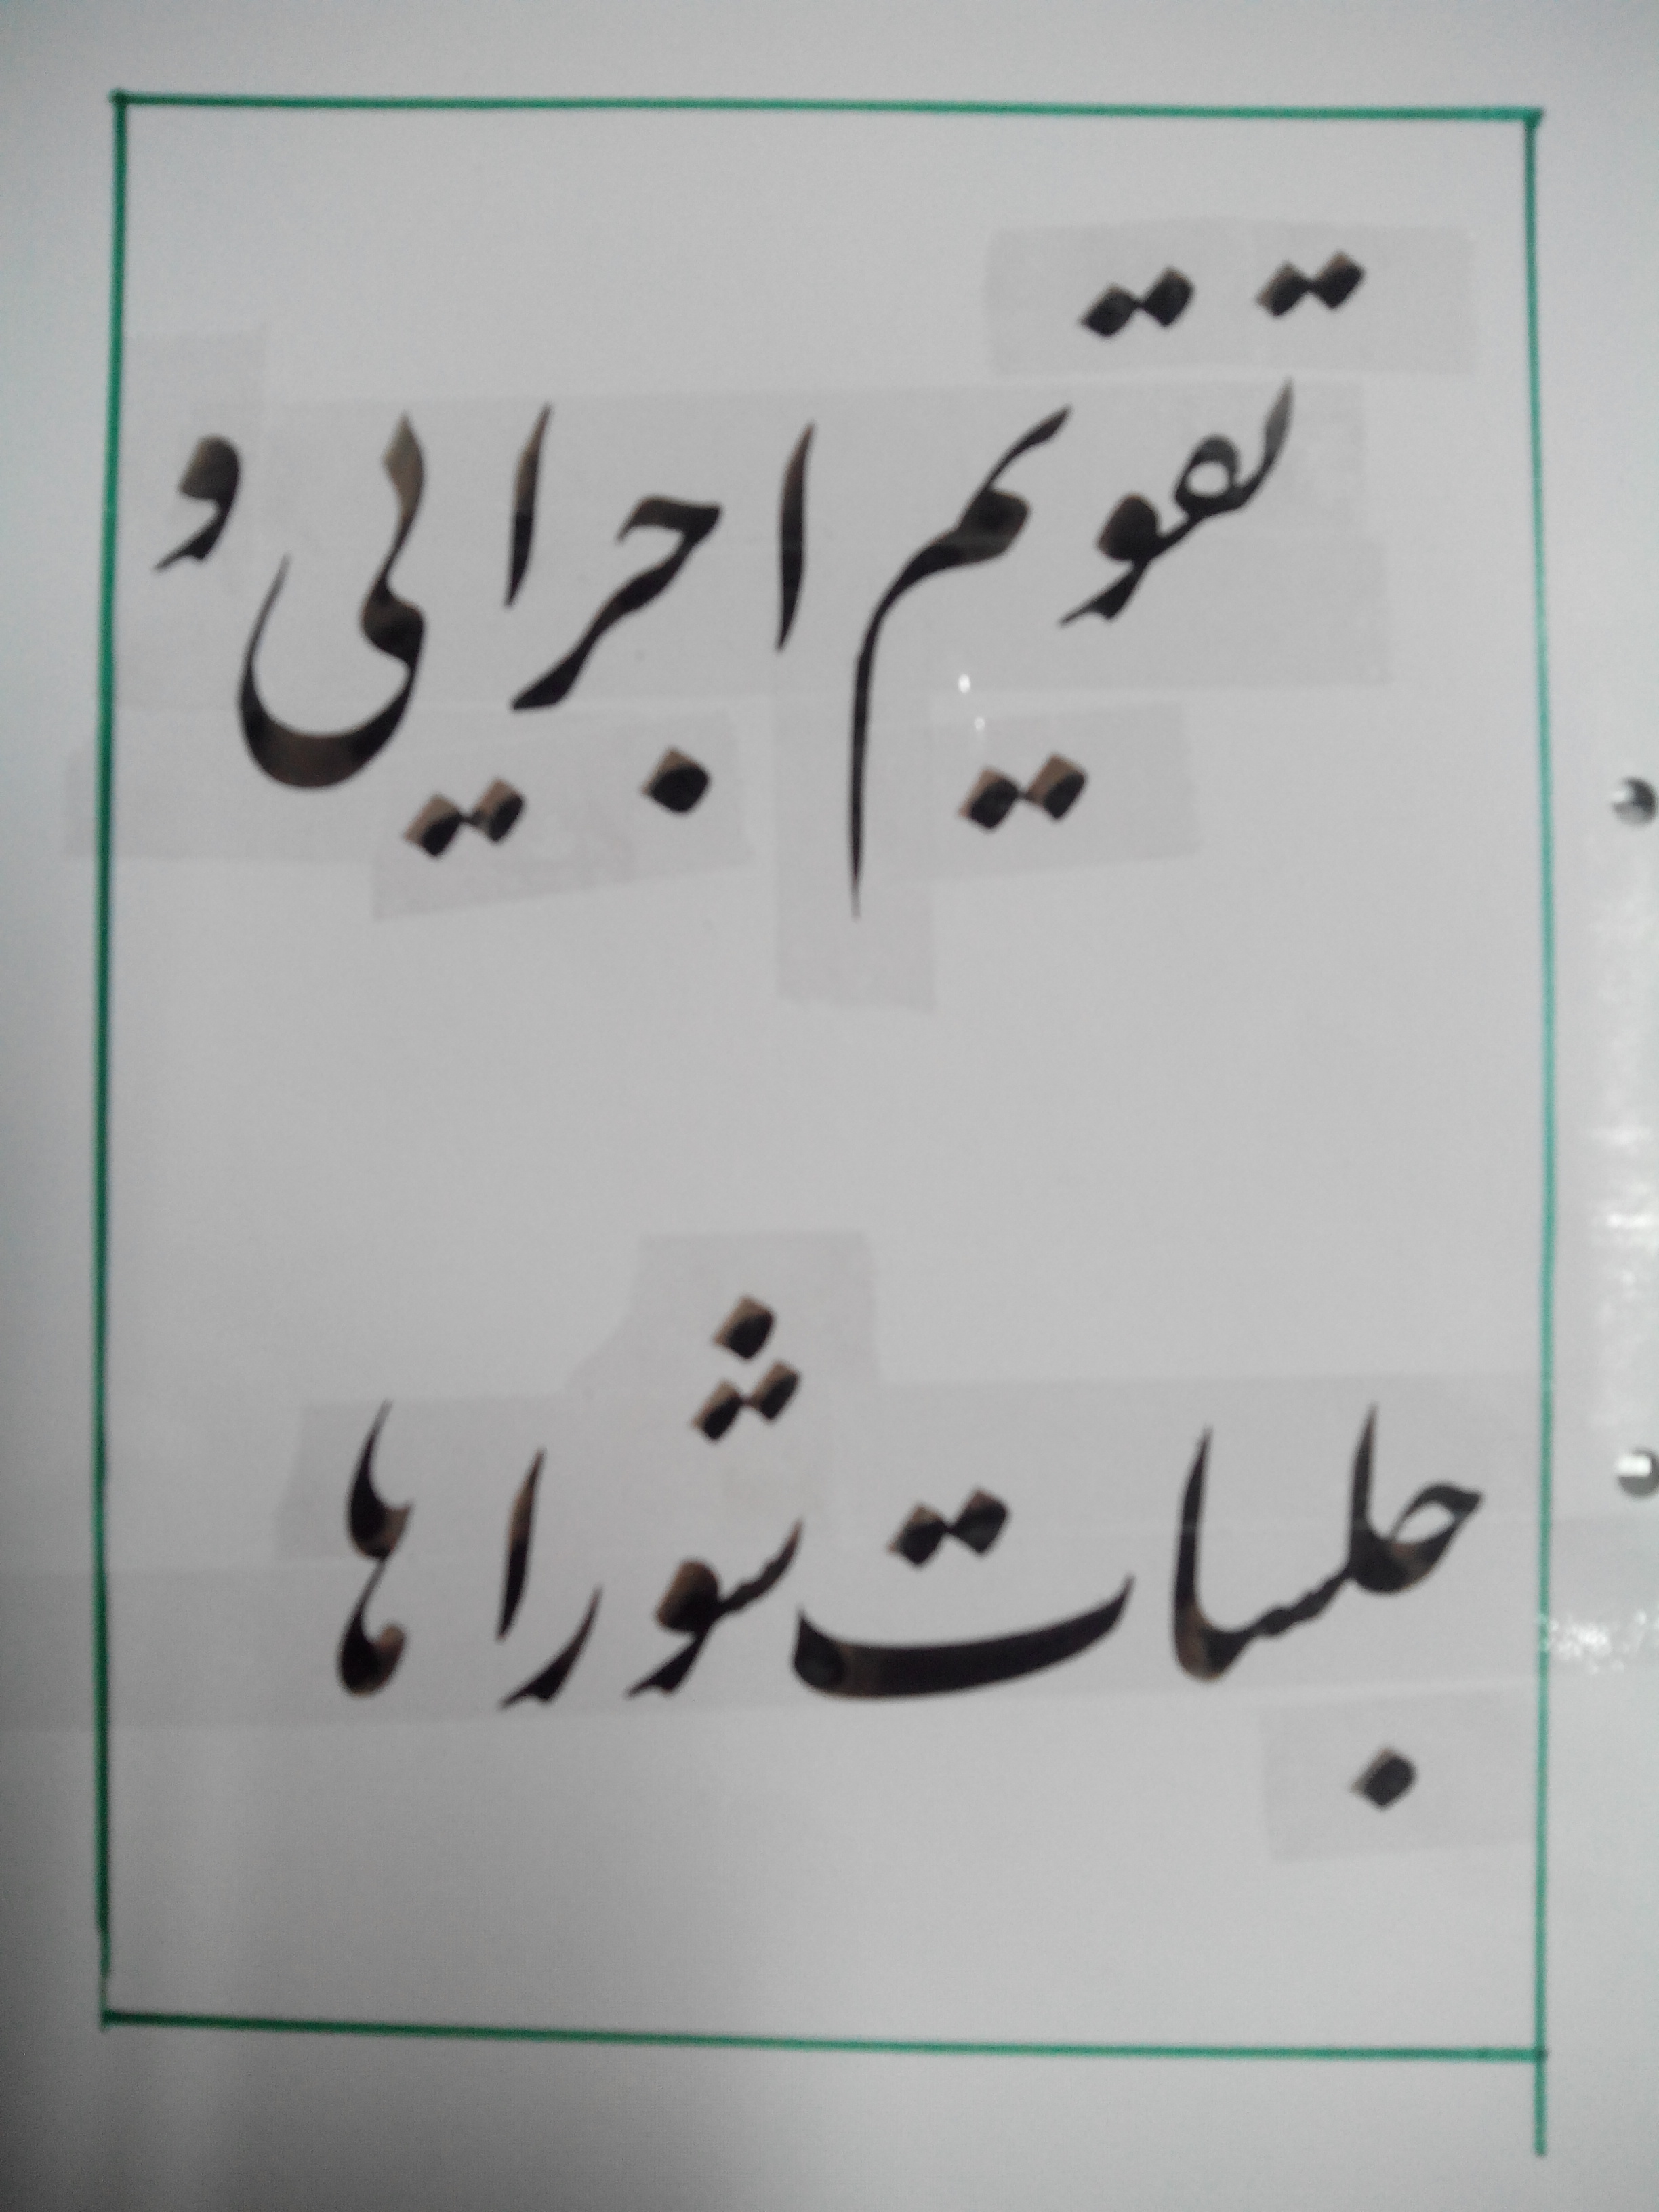 تقویم اجرایی و
جلسات شوراها